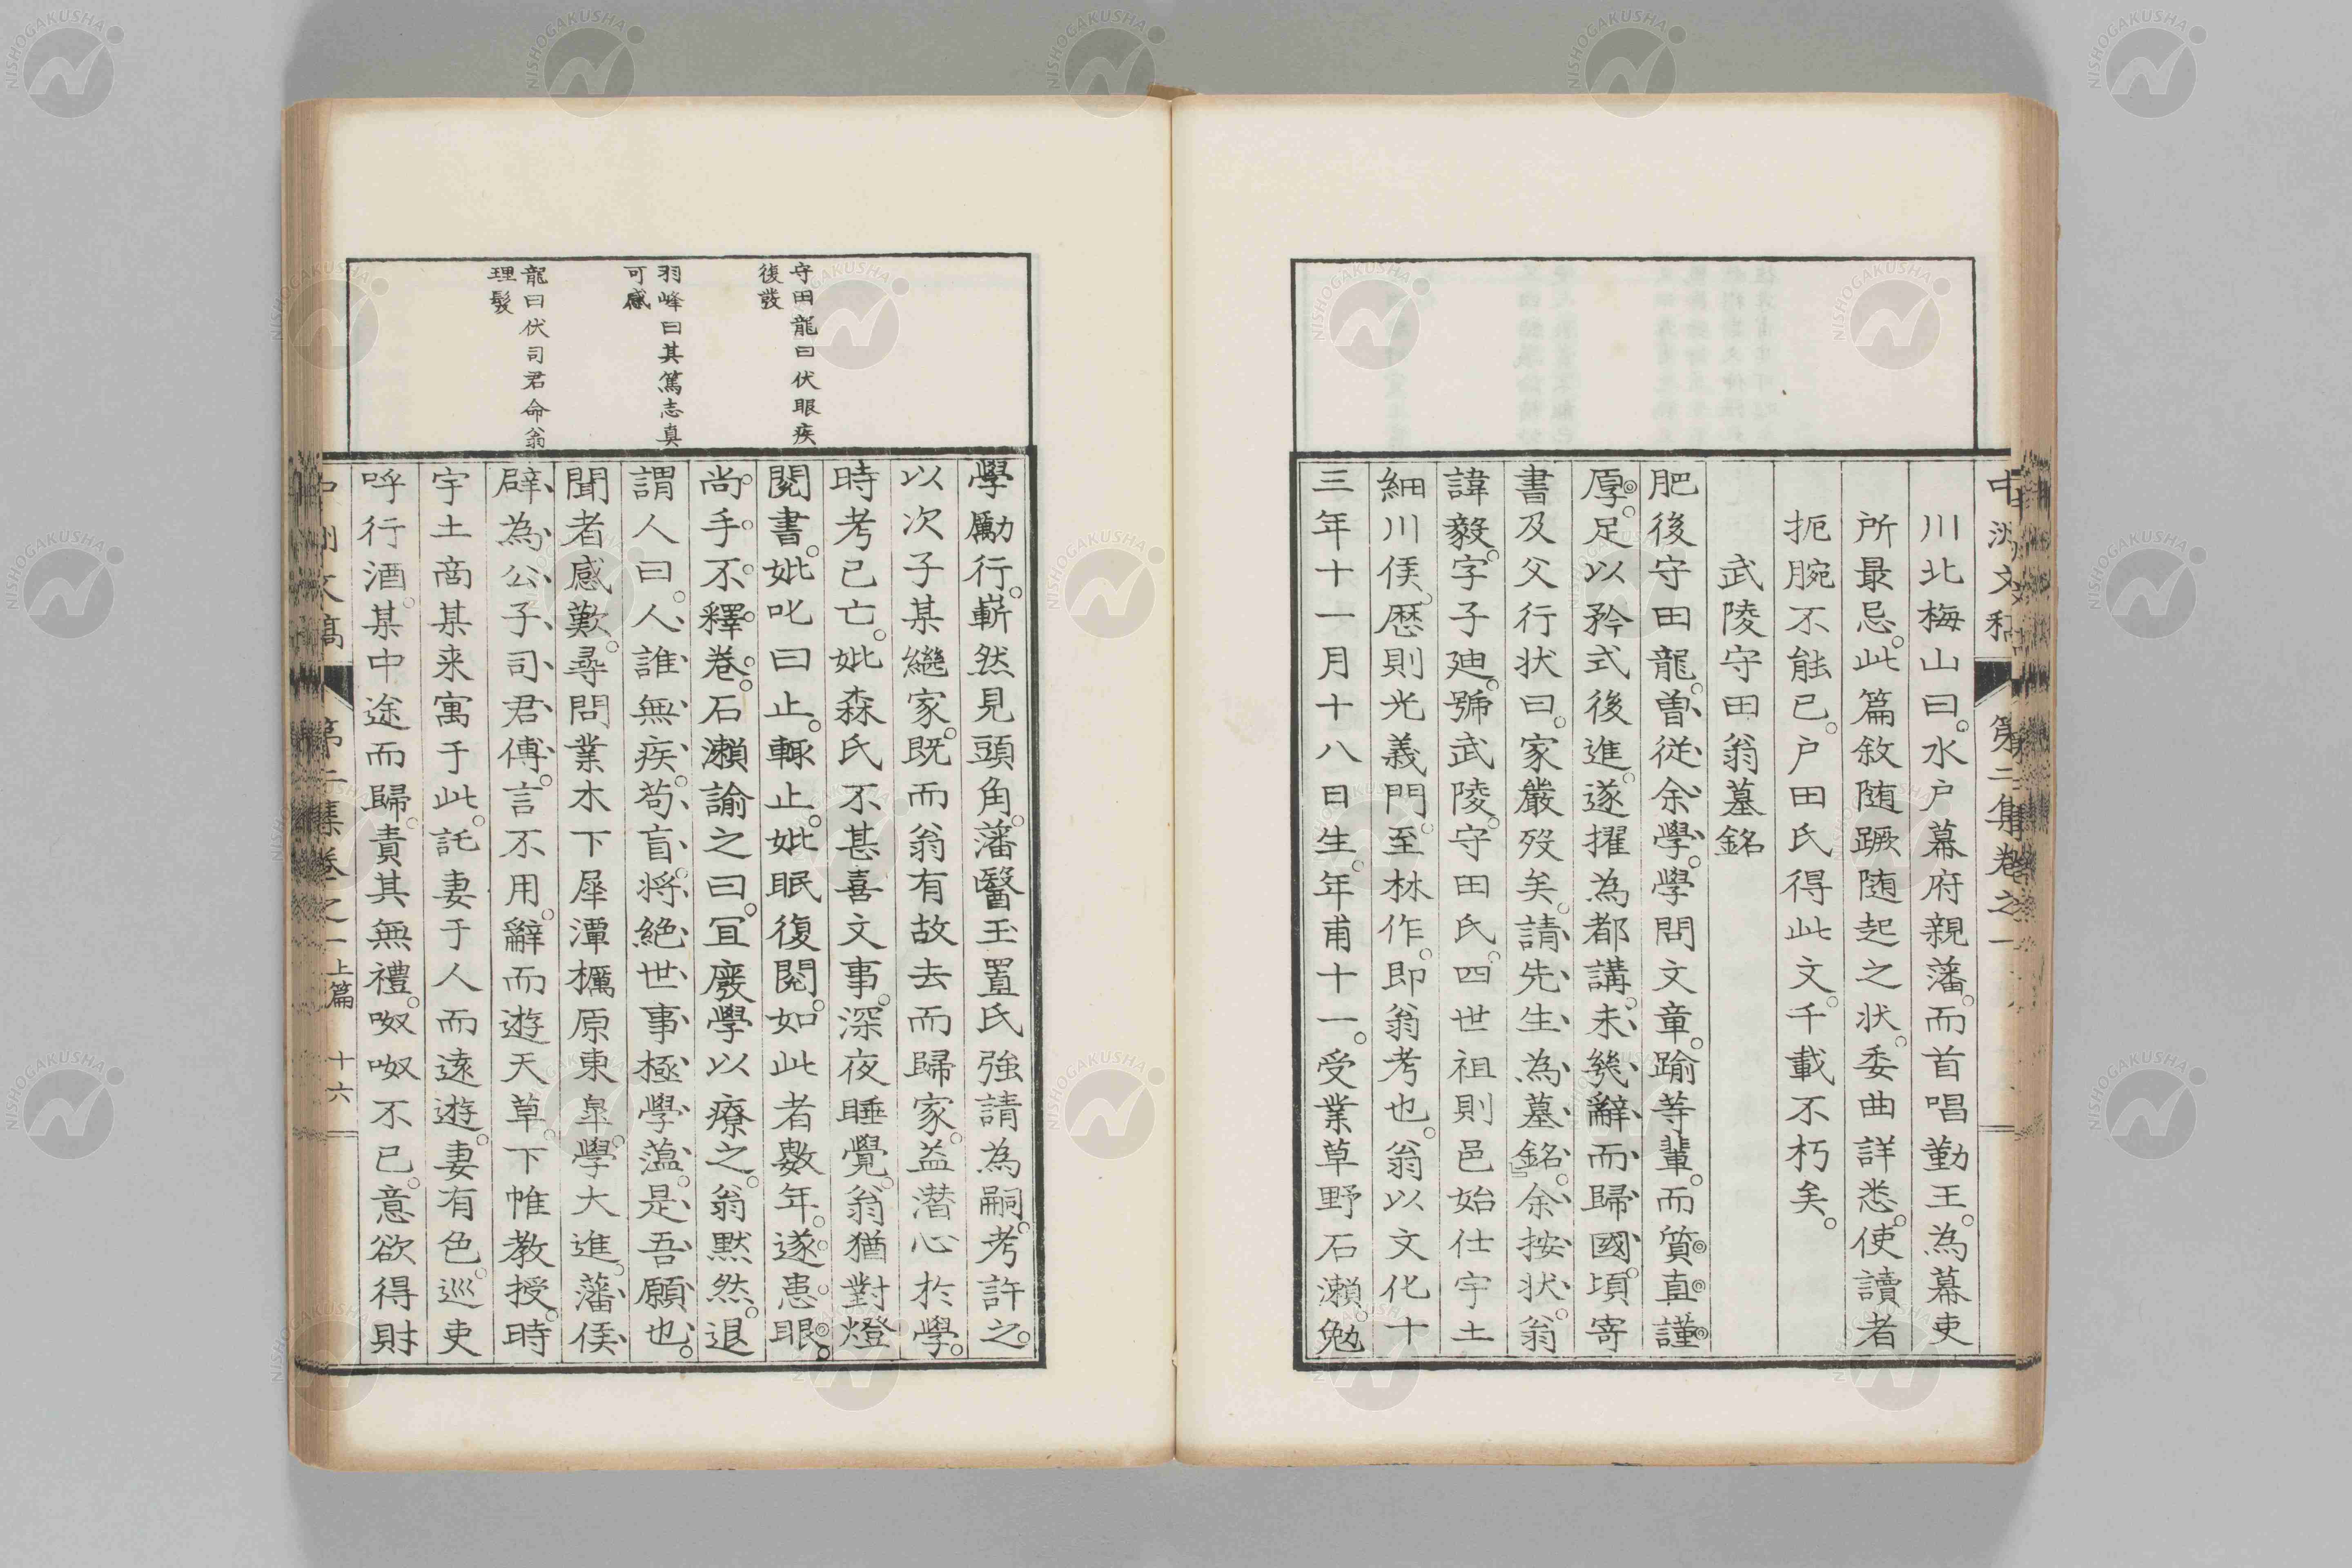 川北梅山曰。水戶幕府親藩。而首唱勤王。為幕吏
所最忌。此篇敘随蹶随起之状。委曲詳悉。使讀者
扼腕不能已。戶田氏得此文。千載不朽矣。
武陵守田翁墓銘
肥後守田龍。曽從余學。學問文章。踰等輩。而質直謹
厚。足以矜式後進。遂擢為都講。未幾辭而歸國。頃寄
書及父行状曰。家嚴歿矣。請先生為墓銘。余按状。翁
諱毅。字子廸。號武陵。守田氏。四世祖則邑始仕宇土
細川侯。歴則光義門。至林作。即翁考也。翁以文化十
三年十一月十八日生。年甫十一。受業草野石瀨。勉
中洲文稿 第二集卷之一
守田龍曰伏眼疾
後發
羽峰曰其篤志真
可感
龍曰伏司君命翁
理髮
學勵行。嶄然見頭角。藩醫玉置氏強請為嗣。考許之。
以次子某繼家。既而翁有故去而歸家。益潜心於學。
時考已亡。妣森氏不甚喜文事。深夜睡覺。翁猶對燈
閱書。妣叱曰止。輙止。妣眠復閱。如此者數年。遂患眼。
尚手不釋卷。石瀨諭之曰。宜廢學以療之。翁默然。退
謂人曰。人誰無疾。苟盲。將絕世事極學薀。是吾願也。
聞者感歎。尋問業木下犀潭櫔原東皐。學大進。藩侯
辟為公子司君傅。言不用。辭而遊天草。下帷教授。時
宇土商某来寓于此。託妻于人而遠遊。妻有色。巡吏
呼行酒。某中途而歸。責其無禮。呶呶不已。意欲得財
中洲文稿 第二集卷之一 上篇 十六